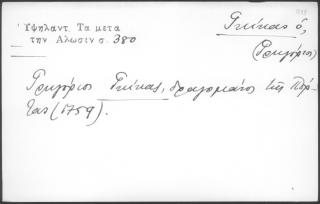 Ὑψηλαντ. Τα μετα
την Αλωσιν σ. 380
Γκίκας ὁ,
(Γρηγόριος)
Γρηγόριος Γκίκας, δραγομάνος τῆς Πόρ-
τας (1759).